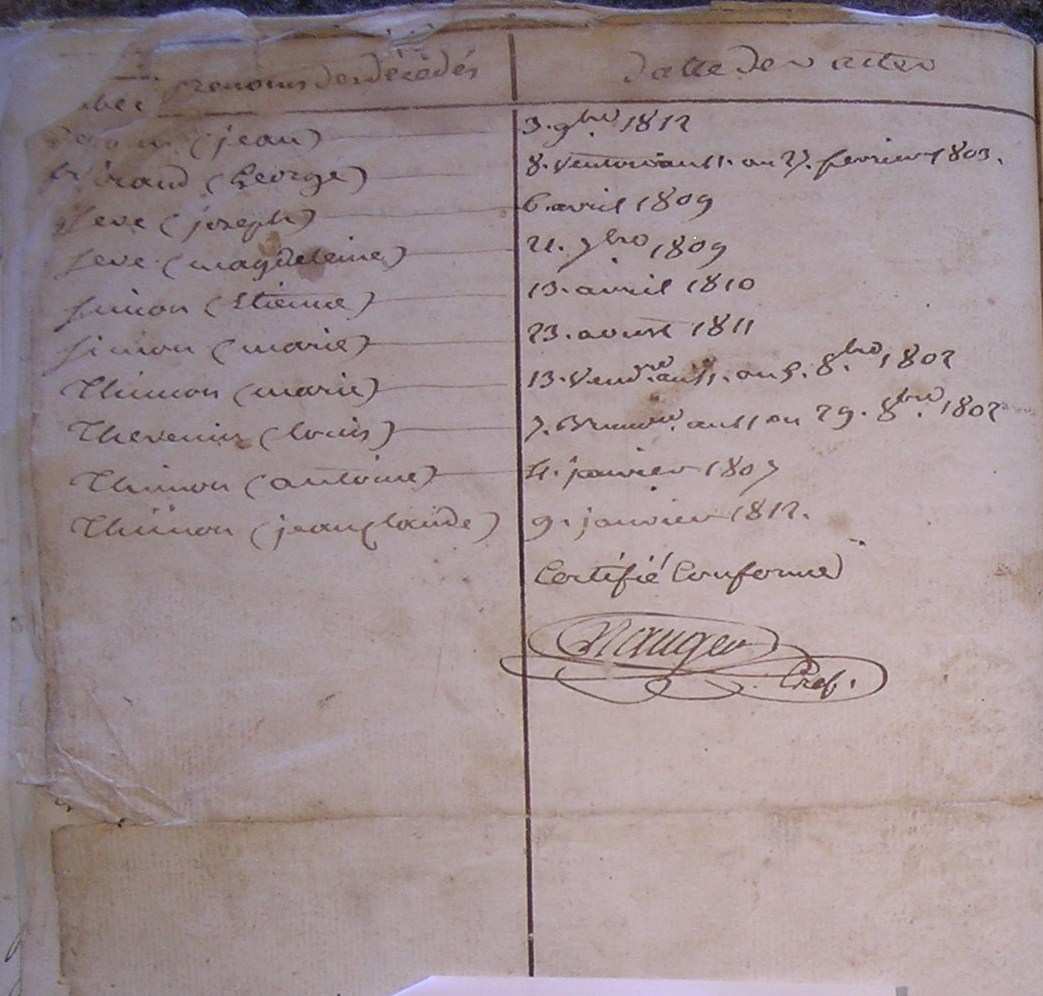 prenoms des décédés	datte des actes
(jean)	3. 9bre 1812
(George)	8. Ventose an 11. ou 27. fevrier 1803.
Seve (joseph)	6. avril 1809
Seve (magdeleine)	21. 7bre 1809
Simon (Etienne)	13. avril 1810
Simon (marie)	23. aoust 1811
Thimon (marie)	13. Vendre. an 11. ou 5. 8bre. 1802
Thevenin (louis)	7. Brumre. an 11 ou 29. 8bre. 1802
Thimon (antoine)	4. janvier 1807
Thimon (jean Claude)	9. janvier 1812.
Certifié Conforme